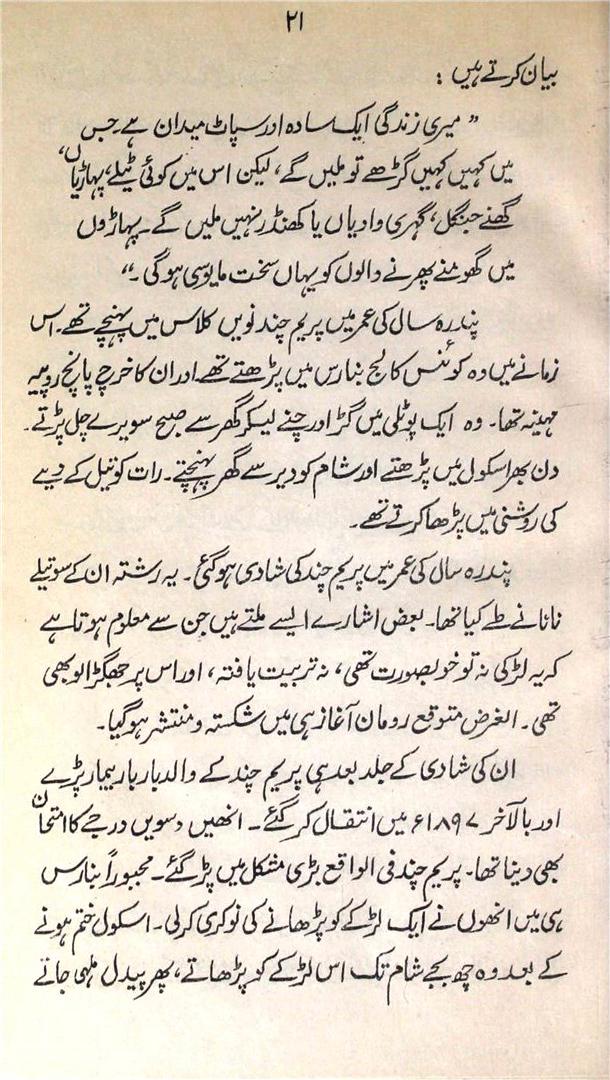 ۲۱
بیان کرتے ہیں :
” میری زندگی ایک سادہ اور سپاٹ میدان ہے۔ جس
میں کہیں کہیں گڑھے تو ملیں گے، لیکن اس میں کوئی ٹیلے، پہاڑیاں،
گھنے جنگل، گہری وادیاں یا کھنڈر نہیں ملیں گے۔ پہاڑوں
میں گھومنے پھرنے والوں کو یہاں سخت مایوسی ہوگی ۔“
پندرہ سال کی عمر میں پریم چند نویں کلاس میں پہنچے تھے۔ اس
زمانے میں وہ کوئنس کالج بنارس میں پڑھتے تھے۔ اور ان کا خرچ پانچ روپیہ
مہینہ تھا۔ وہ ایک پوٹلی میں گڑ اور چنے لیکر گھر سے صبح سویرے چل پڑتے۔
دن بھر اسکول میں پڑھتے اور شام کو دیر سے گھر پہنچتے۔ رات کو تیل کے دیے
کی روشنی میں پڑھا کرتے تھے۔
پندرہ سال کی عمر میں پریم چند کی شادی ہوگئی۔ یہ رشتہ ان کے سوتیلے
نانا نے طے کیا تھا۔ بعض اشارے ایسے ملتے ہیں جن سے معلوم ہوتا ہے
کہ یہ لڑکی نہ تو خوبصورت تھی، نہ تربیت یافتہ، اور اس پر جھگڑالو بھی
تھی۔ الغرض متوقع رومان آغاز ہی میں شکستہ و منتشر ہوگیا۔
ان کی شادی کے جلد بعد ہی پریم چند کے والد بار بار بیمار پڑے
اور بالآخر ۱۸۹۷ء میں انتقال کر گئے۔ انھیں دسویں درجے کا امتحان
بھی دینا تھا۔ پریم چند فی الواقع بڑی مشکل میں پڑ گئے۔ مجبوراً بنارس
ہی میں انھوں نے ایک لڑکے کو پڑھانے کی نوکری کرلی۔ اسکول ختم ہونے
کے بعد وہ چھ بجے شام تک اس لڑکے کو پڑھاتے، پھر پیدل لمہی جاتے